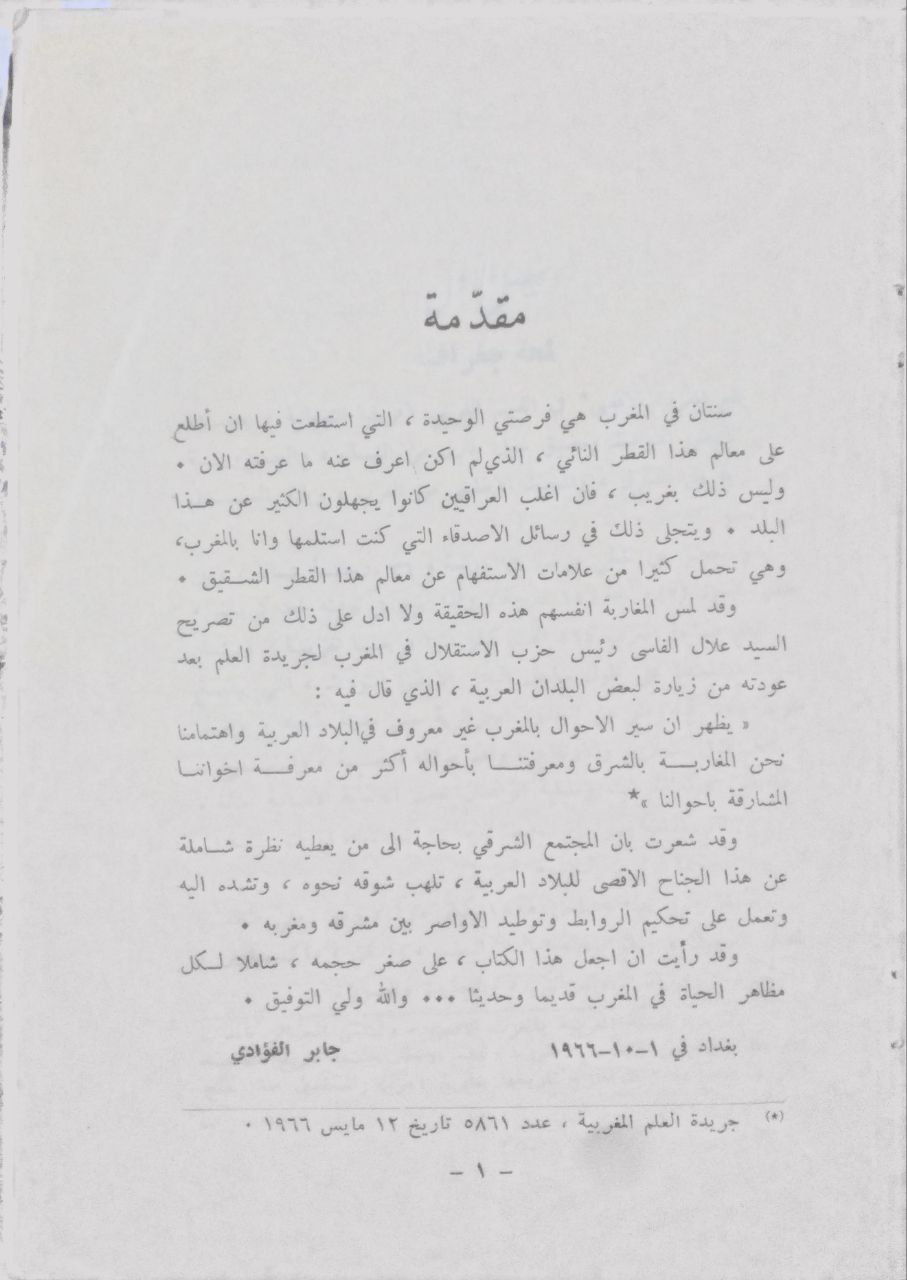 مقدّمة
سنتان في المغرب هي فرصتي الوحيدة ، التي استطعت فيها ان أطلع
على معالم هذا القطر النائي ، الذي لم اكن اعرف عنه ما عرفته الان .
وليس ذلك بغريب ، فان اغلب العراقيين كانوا يجهلون الكثير عن هـذا
البلد . ويتجلى ذلك في رسائل الاصدقاء التي كنت استلمها وانا بالمغرب،
وهي تحمل كثيرا من علامات الاستفهام عن معالم هذا القطر الشـقيق .
وقد لمس المغاربة انفسهم هذه الحقيقة ولا ادل على ذلك من تصريح
السيد علال الفاسى رئيس حزب الاستقلال في المغرب لجريدة العلم بعد
عودته من زيارة لبعض البلدان العربية ، الذي قال فيه :
« يظهر ان سير الاحوال بالمغرب غير معروف في البلاد العربية واهتمامنا
نحن المغاربـة بالشرق ومعرفتنـا بأحواله أكثر من معرفـة اخواننـا
المشارقة باحوالنا »*
وقد شعرت بان المجتمع الشرقي بحاجة الى من يعطيه نظرة شـاملة
عن هذا الجناح الاقصى للبلاد العربية ، تلهب شوقه نحوه ، وتشده اليه
وتعمل على تحكيم الروابط وتوطيد الاواصر بين مشرقه ومغربه .
وقد رأيت ان اجعل هذا الكتاب ، على صغر حجمه ، شاملا لـكل
مظاهر الحياة في المغرب قديما وحديثا ... والله ولي التوفيق .
بغداد في ١-١٠-١٩٦٦ جابر الفؤادي
(*) جريدة العلم المغربية ، عدد ٥٨٦١ تاريخ ١٢ مايس ١٩٦٦ .
- ١ -